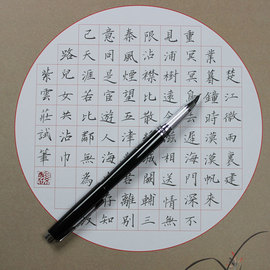 楚江微雨裏建
業暮鐘時漠漠帆來
重冥冥鳥去遲海門深不
見浦樹遠含滋相送情無
限沾襟比散絲城闕輔三
秦風煙望五津與君離別
意同是宦遊人海內存知
己天涯若比鄰無為
路兒女共沾巾
紫雲莊試筆